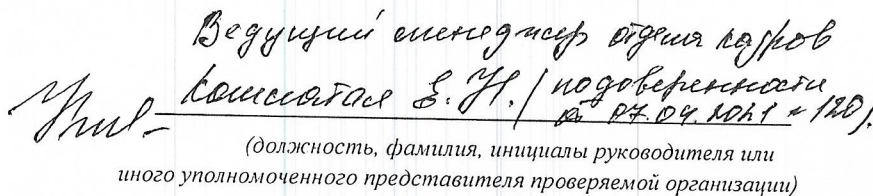 Ведущий менеджер отдела кадров
Е. Н. / по доверенности
от 07.04.2021 № 120).
(должность, фамилия, инициалы руководителя или
иного уполномоченного представителя проверяемой организации)